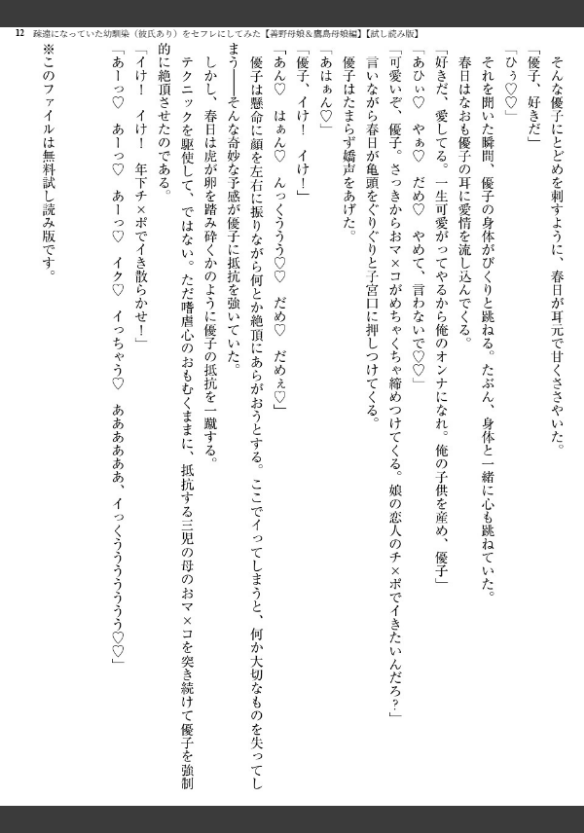 12 疎遠になっていた幼馴染（彼氏あり）をセフレにしてみた【善野母娘＆鷹島母娘編】【試し読み版】
そんな優子にとどめを刺すように、春日が耳元で甘くささやいた。
「優子、好きだ」
「ひぅ♡♡」
それを聞いた瞬間、優子の身体がびくりと跳ねる。たぶん、身体と一緒に心も跳ねていた。
春日はなおも優子の耳に愛情を流し込んでくる。
「好きだ、愛してる。一生可愛がってやるから俺のオンナになれ。俺の子供を産め、優子」
「あひぃ♡　やぁ♡　だめ♡　やめて、言わないで♡♡」
「可愛いぞ、優子。さっきからおマ×コがめちゃくちゃ締めつけてくる。娘の恋人のチ×ポでイきたいんだろ？」
言いながら春日が亀頭をぐりぐりと子宮口に押しつけてくる。
優子はたまらず嬌声をあげた。
「あはぁん♡」
「優子、イけ！　イけ！」
「あん♡　はぁん♡　んっくううう♡♡　だめ♡　だめぇ♡」
優子は懸命に顔を左右に振りながら何とか絶頂にあらがおうとする。ここでイってしまうと、何か大切なものを失ってし
まう――そんな奇妙な予感が優子に抵抗を強いていた。
しかし、春日は虎が卵を踏み砕くかのように優子の抵抗を一蹴する。
テクニックを駆使して、ではない。ただ嗜虐心のおもむくままに、抵抗する三児の母のおマ×コを突き続けて優子を強制
的に絶頂させたのである。
「イけ！　イけ！　年下チ×ポでイき散らかせ！」
「あーっ♡　あーっ♡　あーっ♡　イク♡　イっちゃう♡　ああああああ、イっくうううううう♡♡」
※このファイルは無料試し読み版です。